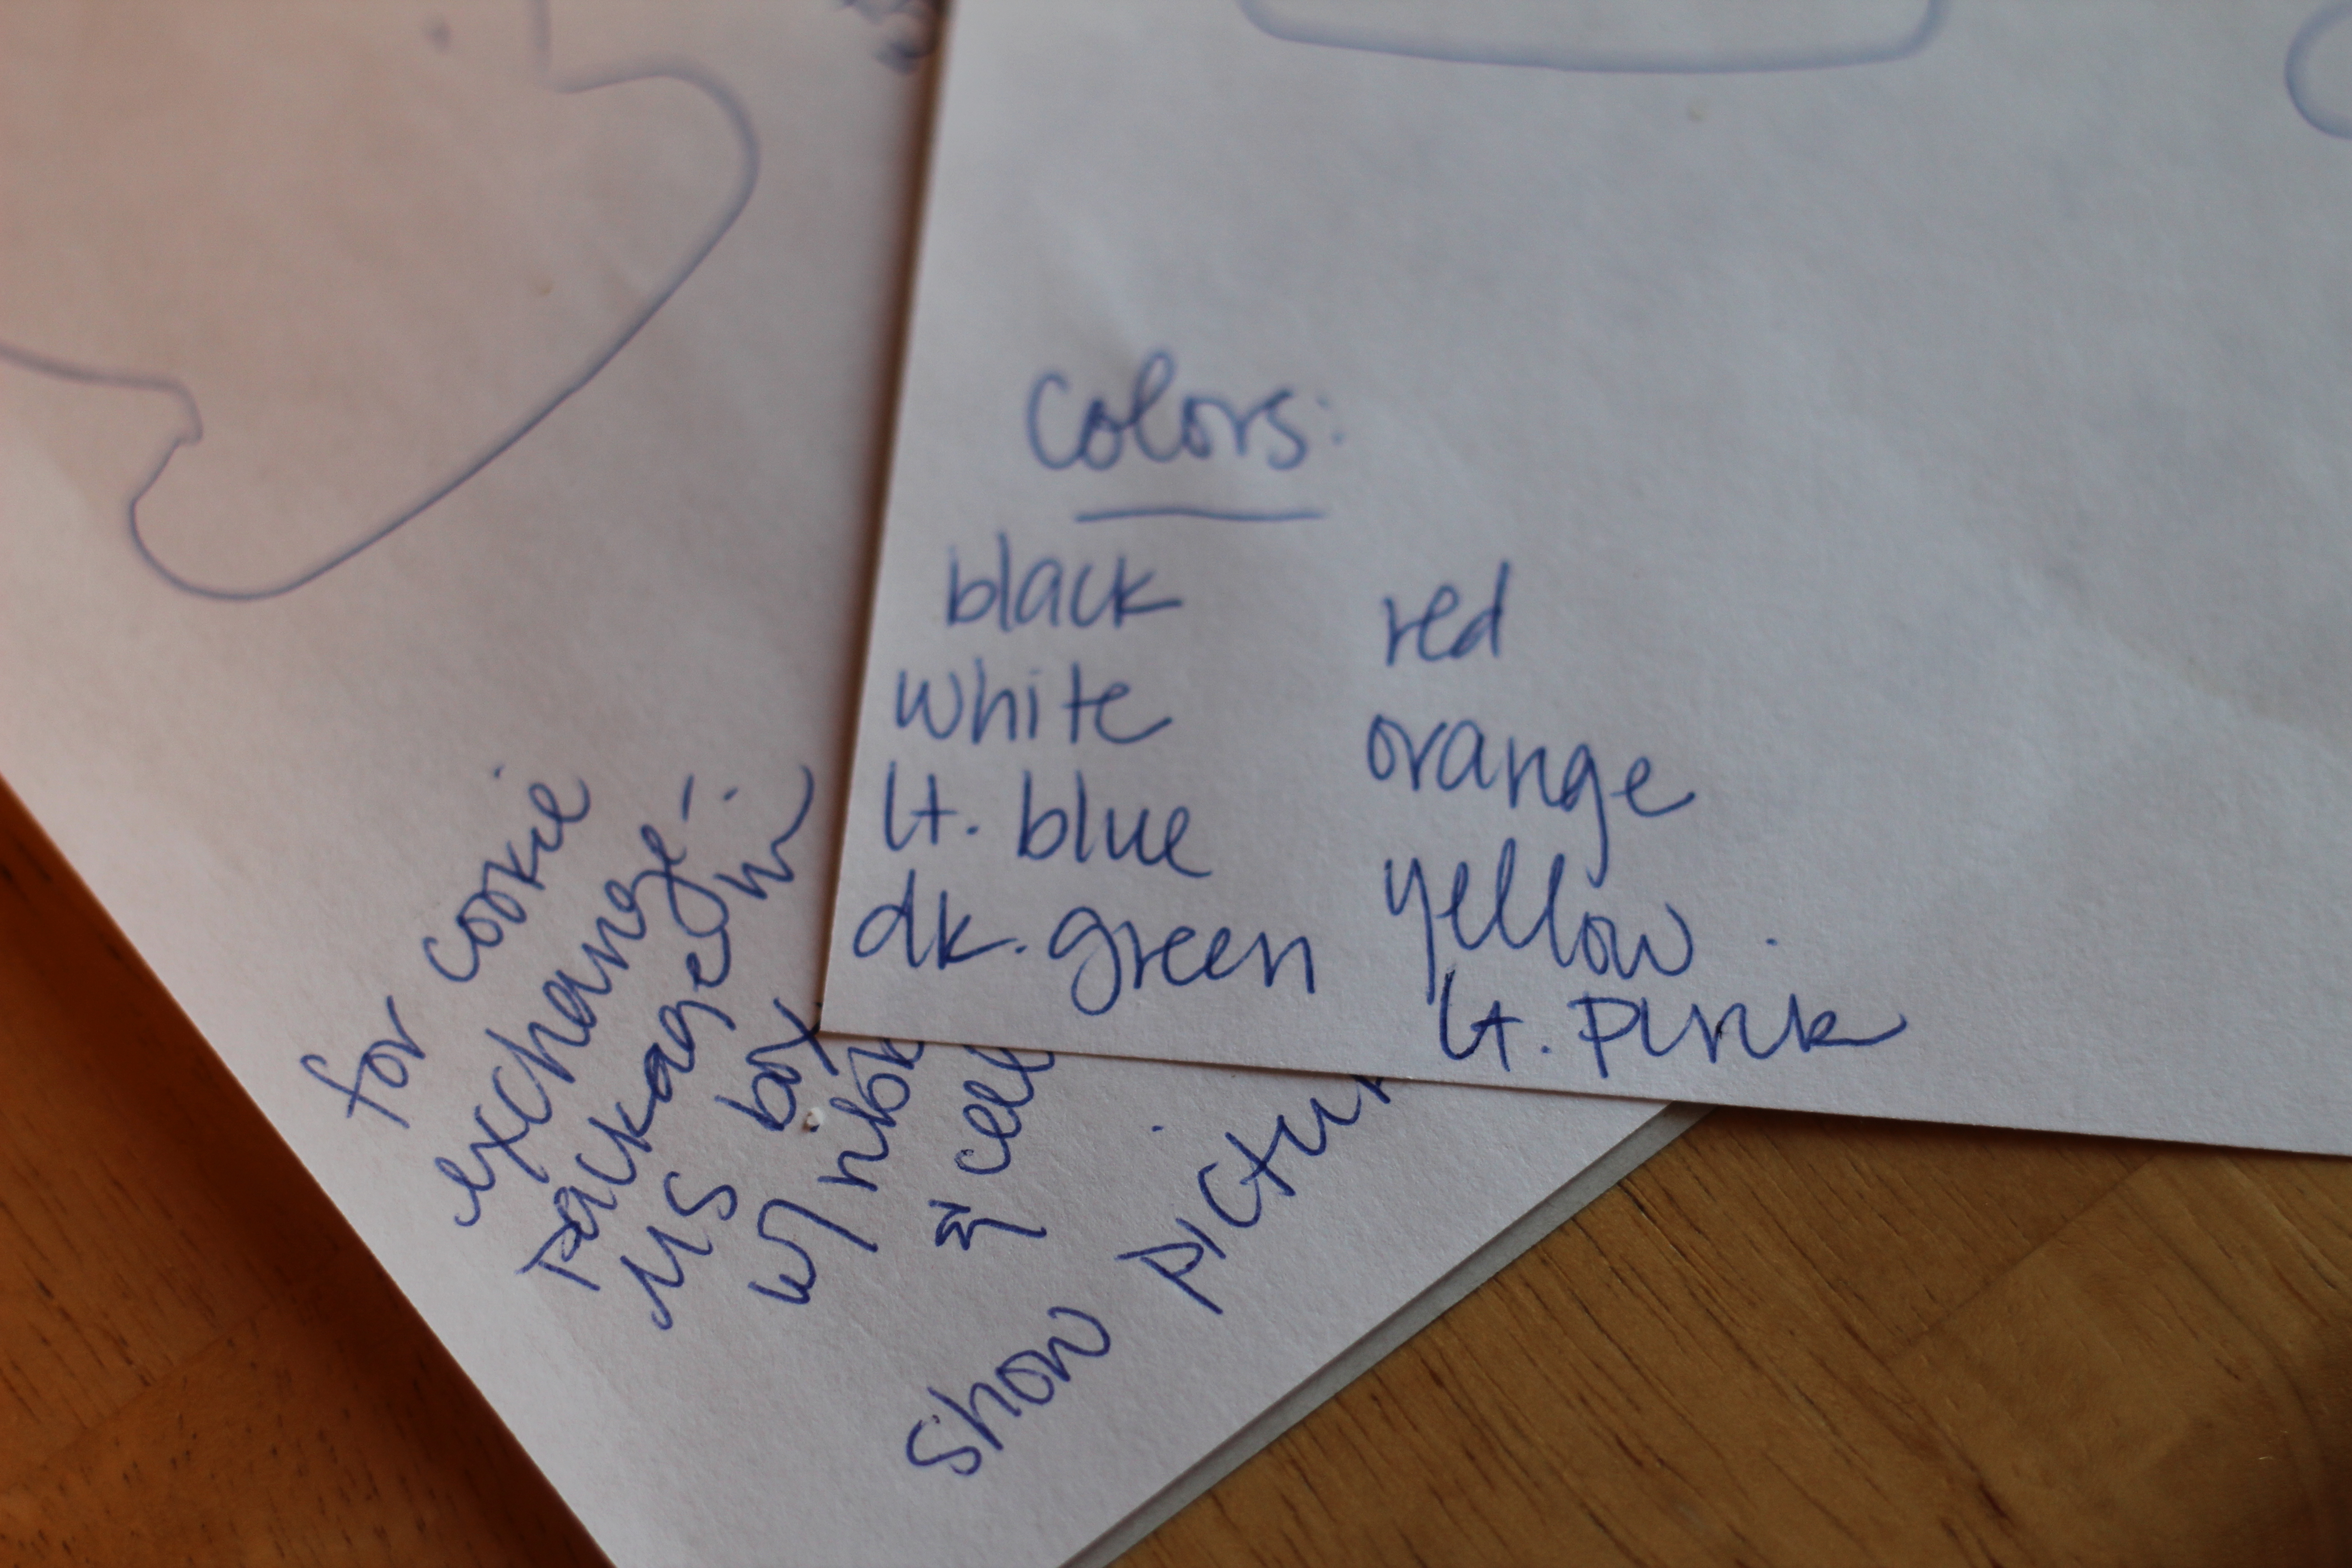 Colors:
black
white
lt. blue
dk. green
red
orange
yellow
lt. pink
for cookie
exchange -
package in
MS box
w/
show